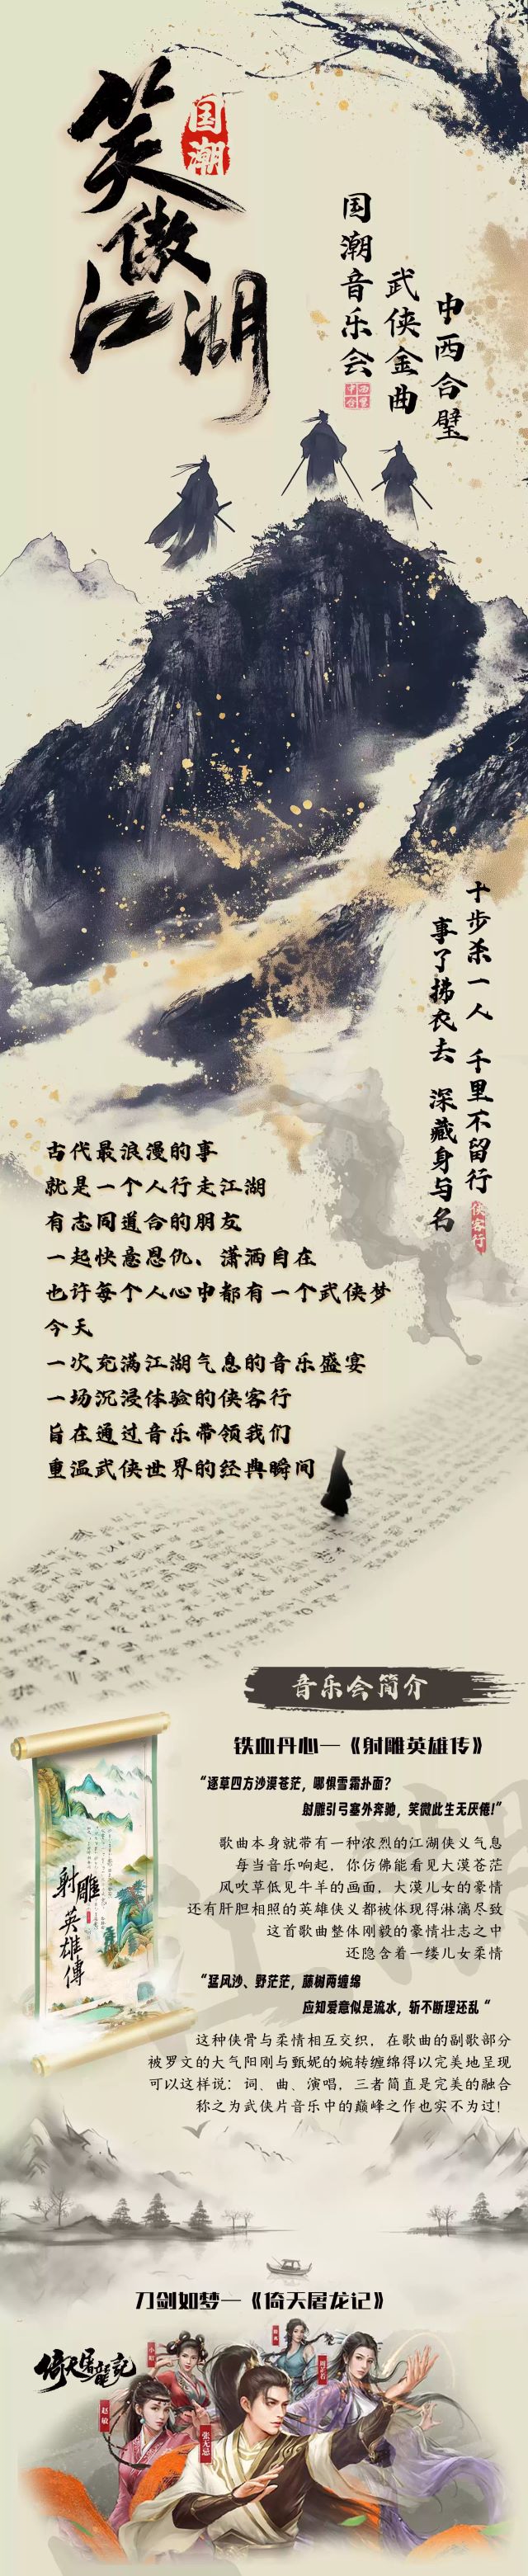 笑傲江湖
国潮
国潮音乐会
武侠金曲
中西合璧
十步杀一人 千里不留行
事了拂衣去 深藏身与名
侠客行
古代最浪漫的事
就是一个人行走江湖
有志同道合的朋友
一起快意恩仇、潇洒自在
也许每个人心中都有一个武侠梦
今天
一次充满江湖气息的音乐盛宴
一场沉浸体验的侠客行
旨在通过音乐带领我们
重温武侠世界的经典瞬间
音乐会简介
铁血丹心—《射雕英雄传》
“逐草四方沙漠苍茫，哪惧雪霜扑面？
射雕引弓塞外奔驰，笑微此生无厌倦！”
射雕
英雄傳
歌曲本身就带有一种浓烈的江湖侠义气息
每当音乐响起，你仿佛能看见大漠苍茫
风吹草低见牛羊的画面，大漠儿女的豪情
还有肝胆相照的英雄侠义都被体现得淋漓尽致
这首歌曲整体刚毅的豪情壮志之中
还隐含着一缕儿女柔情
“猛风沙、野茫茫，藤树两缠绵
应知爱意似是流水，斩不断理还乱“
这种侠骨与柔情相互交织，在歌曲的副歌部分
被罗文的大气阳刚与甄妮的婉转缠绵得以完美地呈现
可以这样说：词、曲、演唱，三者简直是完美的融合
称之为武侠片音乐中的巅峰之作也实不为过！
刀剑如梦—《倚天屠龙记》
倚天屠龍記
小昭
周芷若
赵敏
张无忌